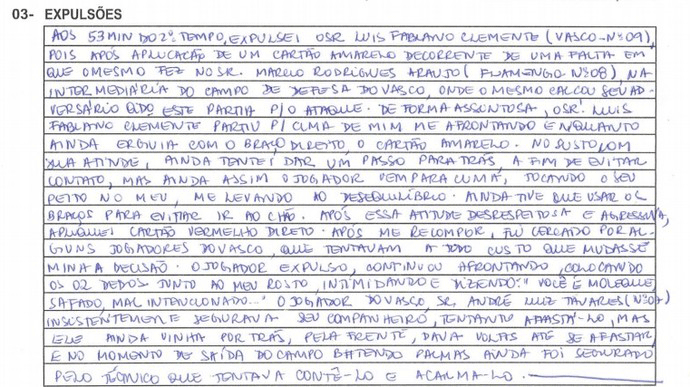 03- EXPULSÕES
AOS 53MIN DO 2º TEMPO, EXPULSEI O SR. LUIS FABIANO CLEMENTE (VASCO-Nº09),
POIS APÓS APLICAÇÃO DE UM CARTÃO AMARELO DECORRENTE DE UMA FALTA EM
QUE O MESMO FEZ NO SR. MARCIO RODRIGUES ARAUJO (FLAMENGO Nº08), NA
INTERMEDIÁRIA DO CAMPO DE DEFESA DO VASCO, ONDE O MESMO CALÇOU SEU AD-
VERSÁRIO QDO ESTE PARTIA P/O ATAQUE. DE FORMA ASSINTOSA, O SR. LUIS
FABIANO CLEMENTE PARTIU P/ CIMA DE MIM ME AFRONTANDO ENQUANTO
AINDA ERGUIA COM O BRAÇO DIREITO, O CARTÃO AMARELO. NO SUSTO, COM
SUA ATITUDE, AINDA TENTEI DAR UM PASSO PARA TRÁS, A FIM DE EVITAR
CONTATO, MAS AINDA ASSIM O JOGADOR VEM PARA CIMA, TOCANDO O SEU
PEITO NO MEU, ME LEVANDO AO DESEQUILÍBRIO. AINDA TIVE QUE USAR OS
BRAÇOS PARA EVITAR IR AO CHÃO. APÓS ESSA ATITUDE DESRESPEITOSA E AGRESSIVA,
APLIQUEI CARTÃO VERMELHO DIRETO. APÓS ME RECOMPOR, FUI CERCADO POR AL-
GUNS JOGADORES DO VASCO, QUE TENTAVAM A TODO CUSTO QUE MUDASSE
MINHA DECISÃO. O JOGADOR EXPULSO, CONTINUOU AFRONTANDO, COLOCANDO
OS 02 DEDOS JUNTO AO MEU ROSTO, INTIMIDANDO E DIZENDO: "VOCÊ É MOLEQUE,
SAFADO, MAL INTENCIONADO..." O JOGADOR DO VASCO, SR. ANDRÉ LUIZ TAVARES (Nº07)
INSISTENTEMENTE SEGURAVA SEU COMPANHEIRO, TENTANTO AFASTÁ-LO, MAS
ELE AINDA VINHA POR TRÁS, PELA FRENTE, DAVA VOLTAS ATÉ SE AFASTAR,
E NO MOMENTO DE SAÍDA DO CAMPO BATENDO PALMAS AINDA FOI SEGURADO
PELO TÉCNICO QUE TENTAVA CONTÊ-LO E ACALMA-LO.